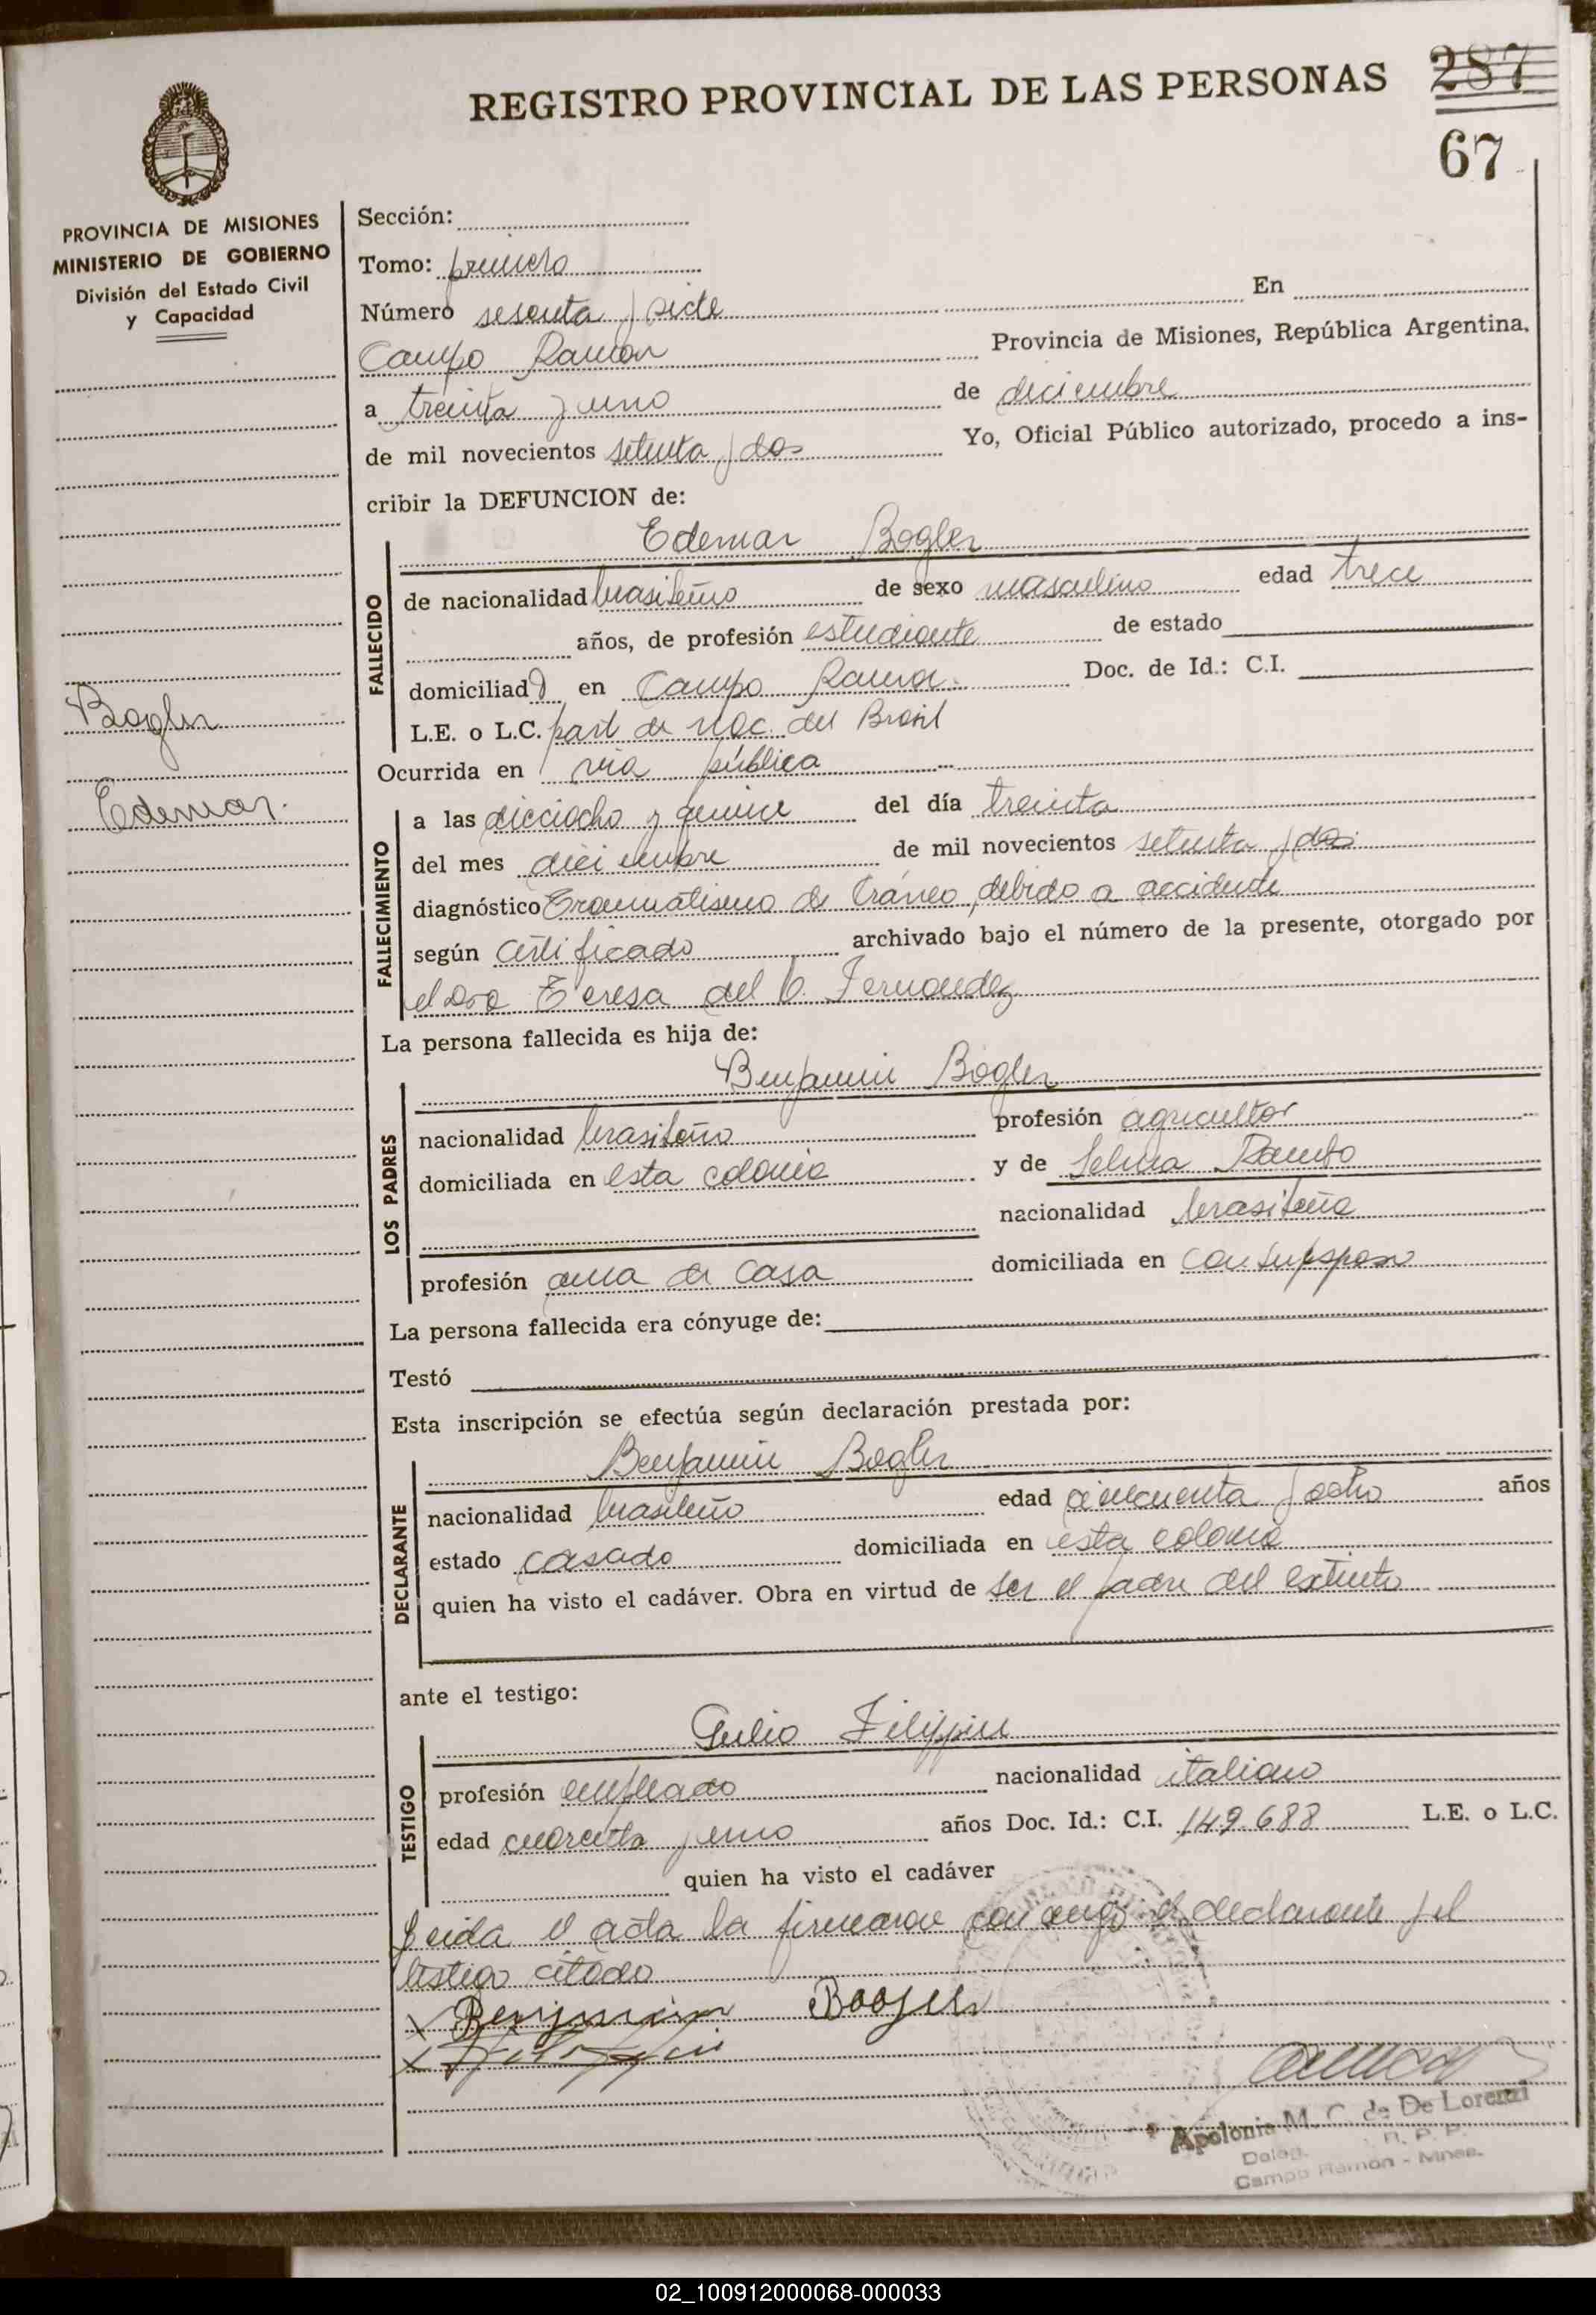 REGISTRO PROVINCIAL DE LAS PERSONAS
287
67
PROVINCIA DE MISIONES
MINISTERIO DE GOBIERNO
División del Estado Civil
y Capacidad
Sección:
Tomo: primero
Número sesenta y siete En
Campo Ramon Provincia de Misiones, República Argentina,
a treinta y uno de diciembre
de mil novecientos setenta y dos Yo, Oficial Público autorizado, procedo a ins-
cribir la DEFUNCION de:
FALLECIDO
Edemar Bogler
de nacionalidad brasileño de sexo masculino edad trece
años, de profesión estudiante de estado
domiciliado en Campo Ramon Doc. de Id.: C.I.
L.E. o L.C. part de nac. del Brasil
Bogler
Edemar.
Ocurrida en vía pública
FALLECIMIENTO
a las dieciocho y quince del día treinta
del mes diciembre de mil novecientos setenta y dos
diagnóstico Traumatismo de Cráneo, debido a accidente
según certificado archivado bajo el número de la presente, otorgado por
el Dra Teresa del C. Fernandez
La persona fallecida es hija de:
LOS PADRES
Benjamin Bogler
nacionalidad brasileño profesión agricultor
domiciliada en esta colonia y de Selma
nacionalidad brasileña
profesión ama de casa domiciliada en con su esposo
La persona fallecida era cónyuge de:
Testó
Esta inscripción se efectúa según declaración prestada por:
DECLARANTE
Benjamin Bogler
nacionalidad brasileño edad cincuenta y ocho años
estado casado domiciliada en esta colonia
quien ha visto el cadáver. Obra en virtud de ser el padre del extinto
ante el testigo:
TESTIGO
Julio Filippin
profesión empleado nacionalidad italiano
edad cuarenta y uno años Doc. Id.: C.I. 149.688 L.E. o L.C.
quien ha visto el cadáver
Leida el acta la firmaron conmigo el declarante y el
testigo citado
x Benjamin Boogler
x
Apolonia M. C. de De Lorenzi
Deleg. R. P. P.
Campo Ramón - Mnes.
02_100912000068-000033